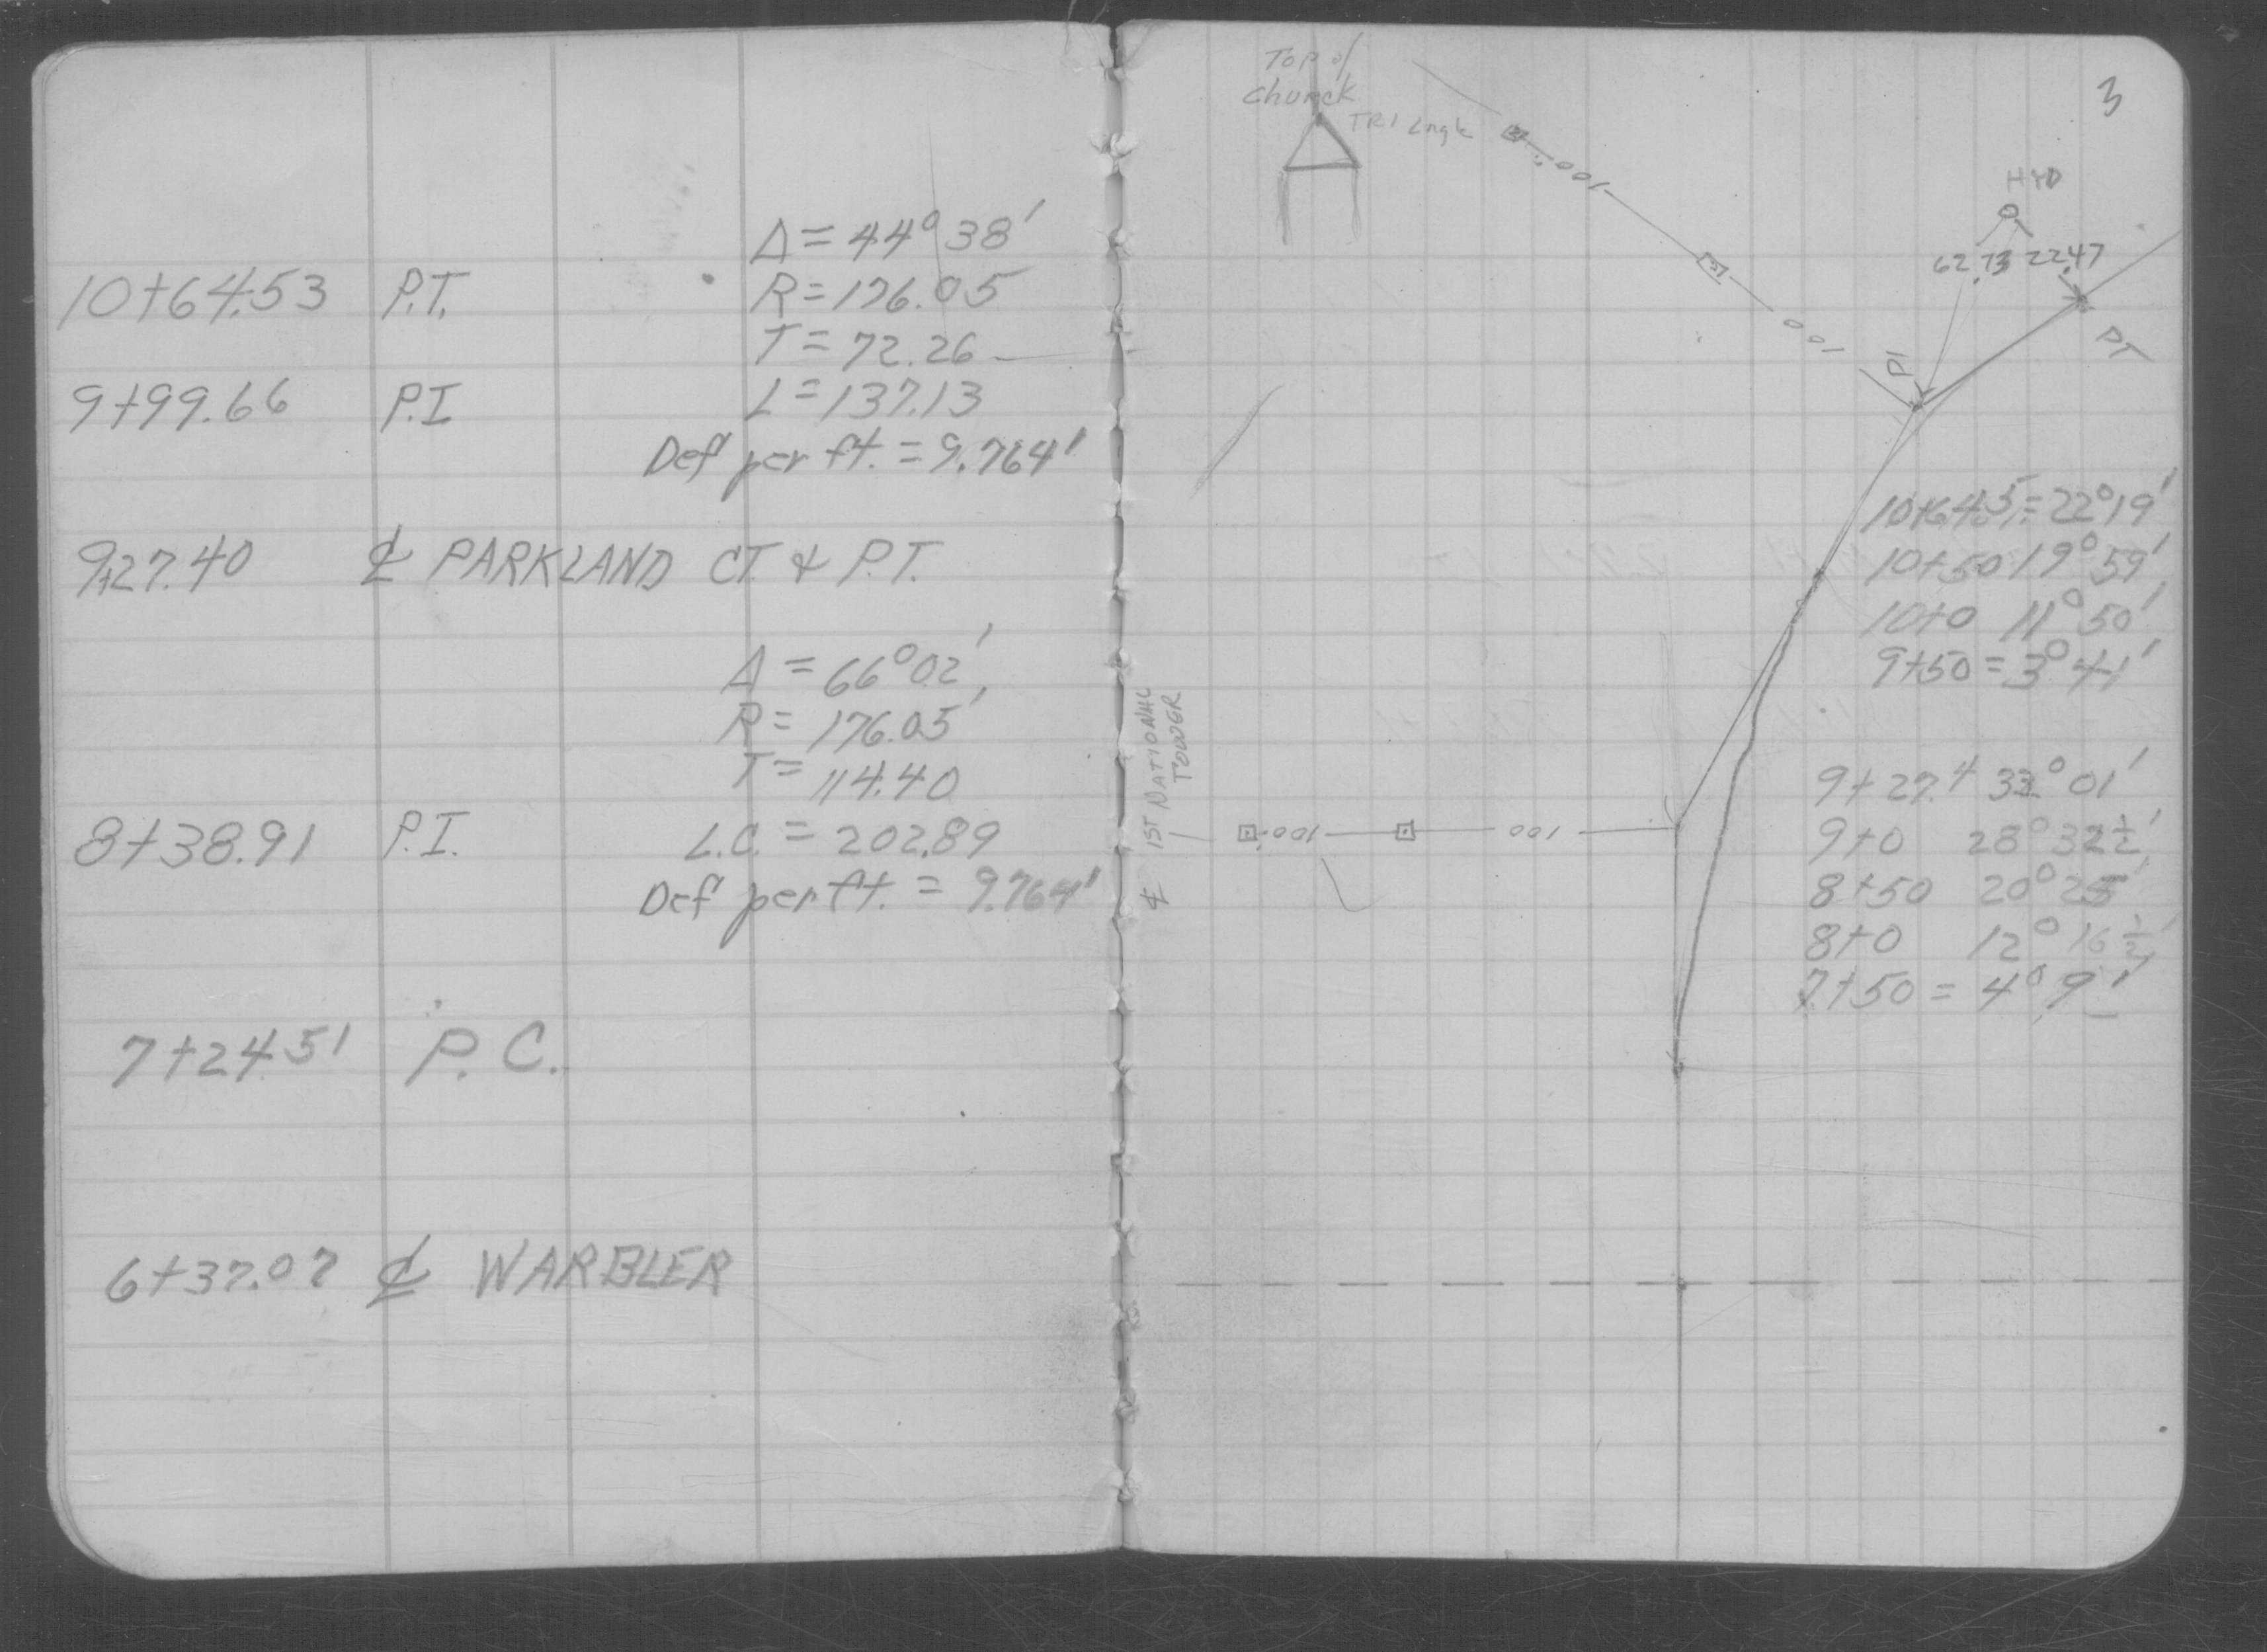 Δ = 44°38'
10+64.53 P.T. R = 176.05
T = 72.26
9+99.66 P.I L = 137.13
Def per ft. = 9.764'
9+27.40 ℄ PARKLAND CT. & P.T.
Δ = 66°02'
R = 176.05'
T = 114.40
8+38.91 P.I. L.C. = 202.89
Def per ft. = 9.764'
7+24.51 P.C.
6+37.07 ℄ WARBLER
3
Top of
Church
TRI Angle
100
HYD
62.73 22.47
100
PI
PT
10+64.5 = 22°19'
10+50 19°59'
10+0 11°50'
9+50 = 3°41'
℄ 1ST NATIONAL
TOWER
100
100
9+27.4 33°01'
9+0 28°32½'
8+50 20°25'
8+0 12°16½'
7+50 = 4°9'